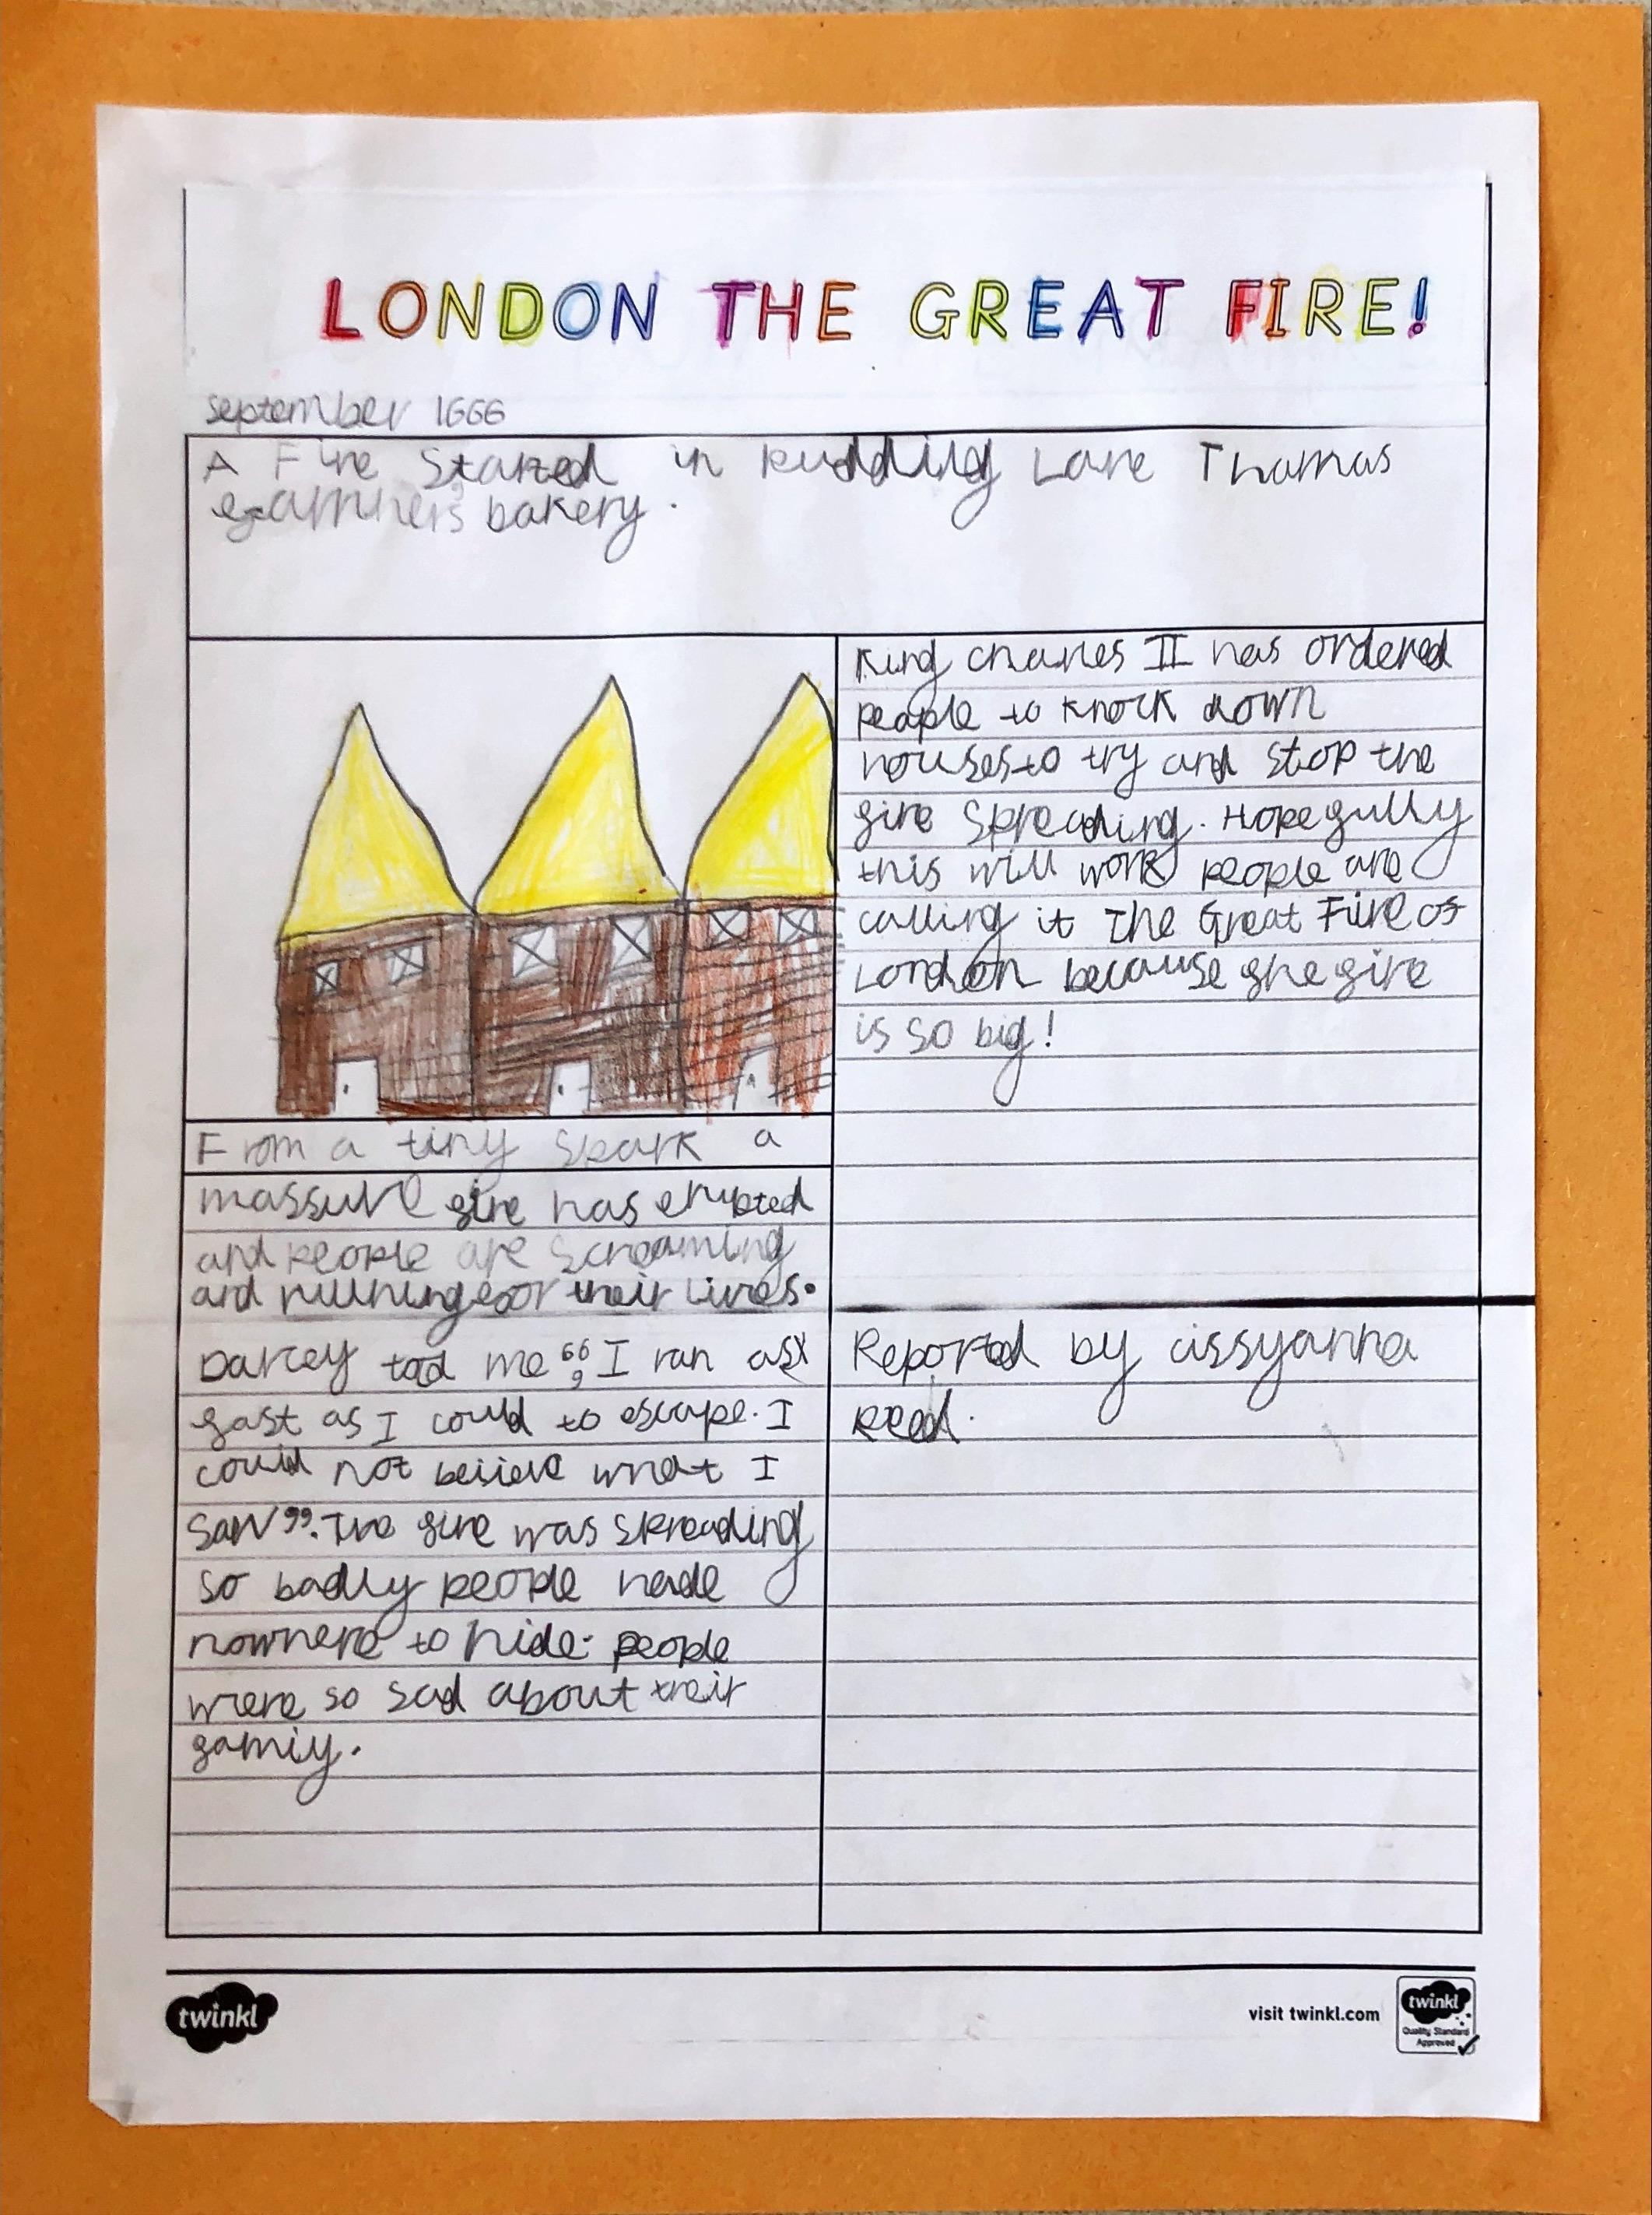 LONDON THE GREAT FIRE!
september 1666
A Fire Started in Pudding Lane Thomas
bakery.
King charles II has ordered
people to knock down
houses to try and stop the
fire spreading. Hopefully
this will work people are
calling it The Great Fire of
London because the fire
is so big!
From a tiny spark a
massive fire has erupted
and people are screaming
and running for their lives.
Darcey told me, “I ran as
fast as I could to escape. I
could not believe what I
saw”. The fire was spreading
so badly people hade
nowhere to hide. people
were so sad about their
famiy.
Reported by cissyanna
Reed.
twinkl
visit twinkl.com
twinkl
Quality Standard
Approved